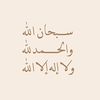 سبحان الله
والحمد لله
ولا إله إلا الله